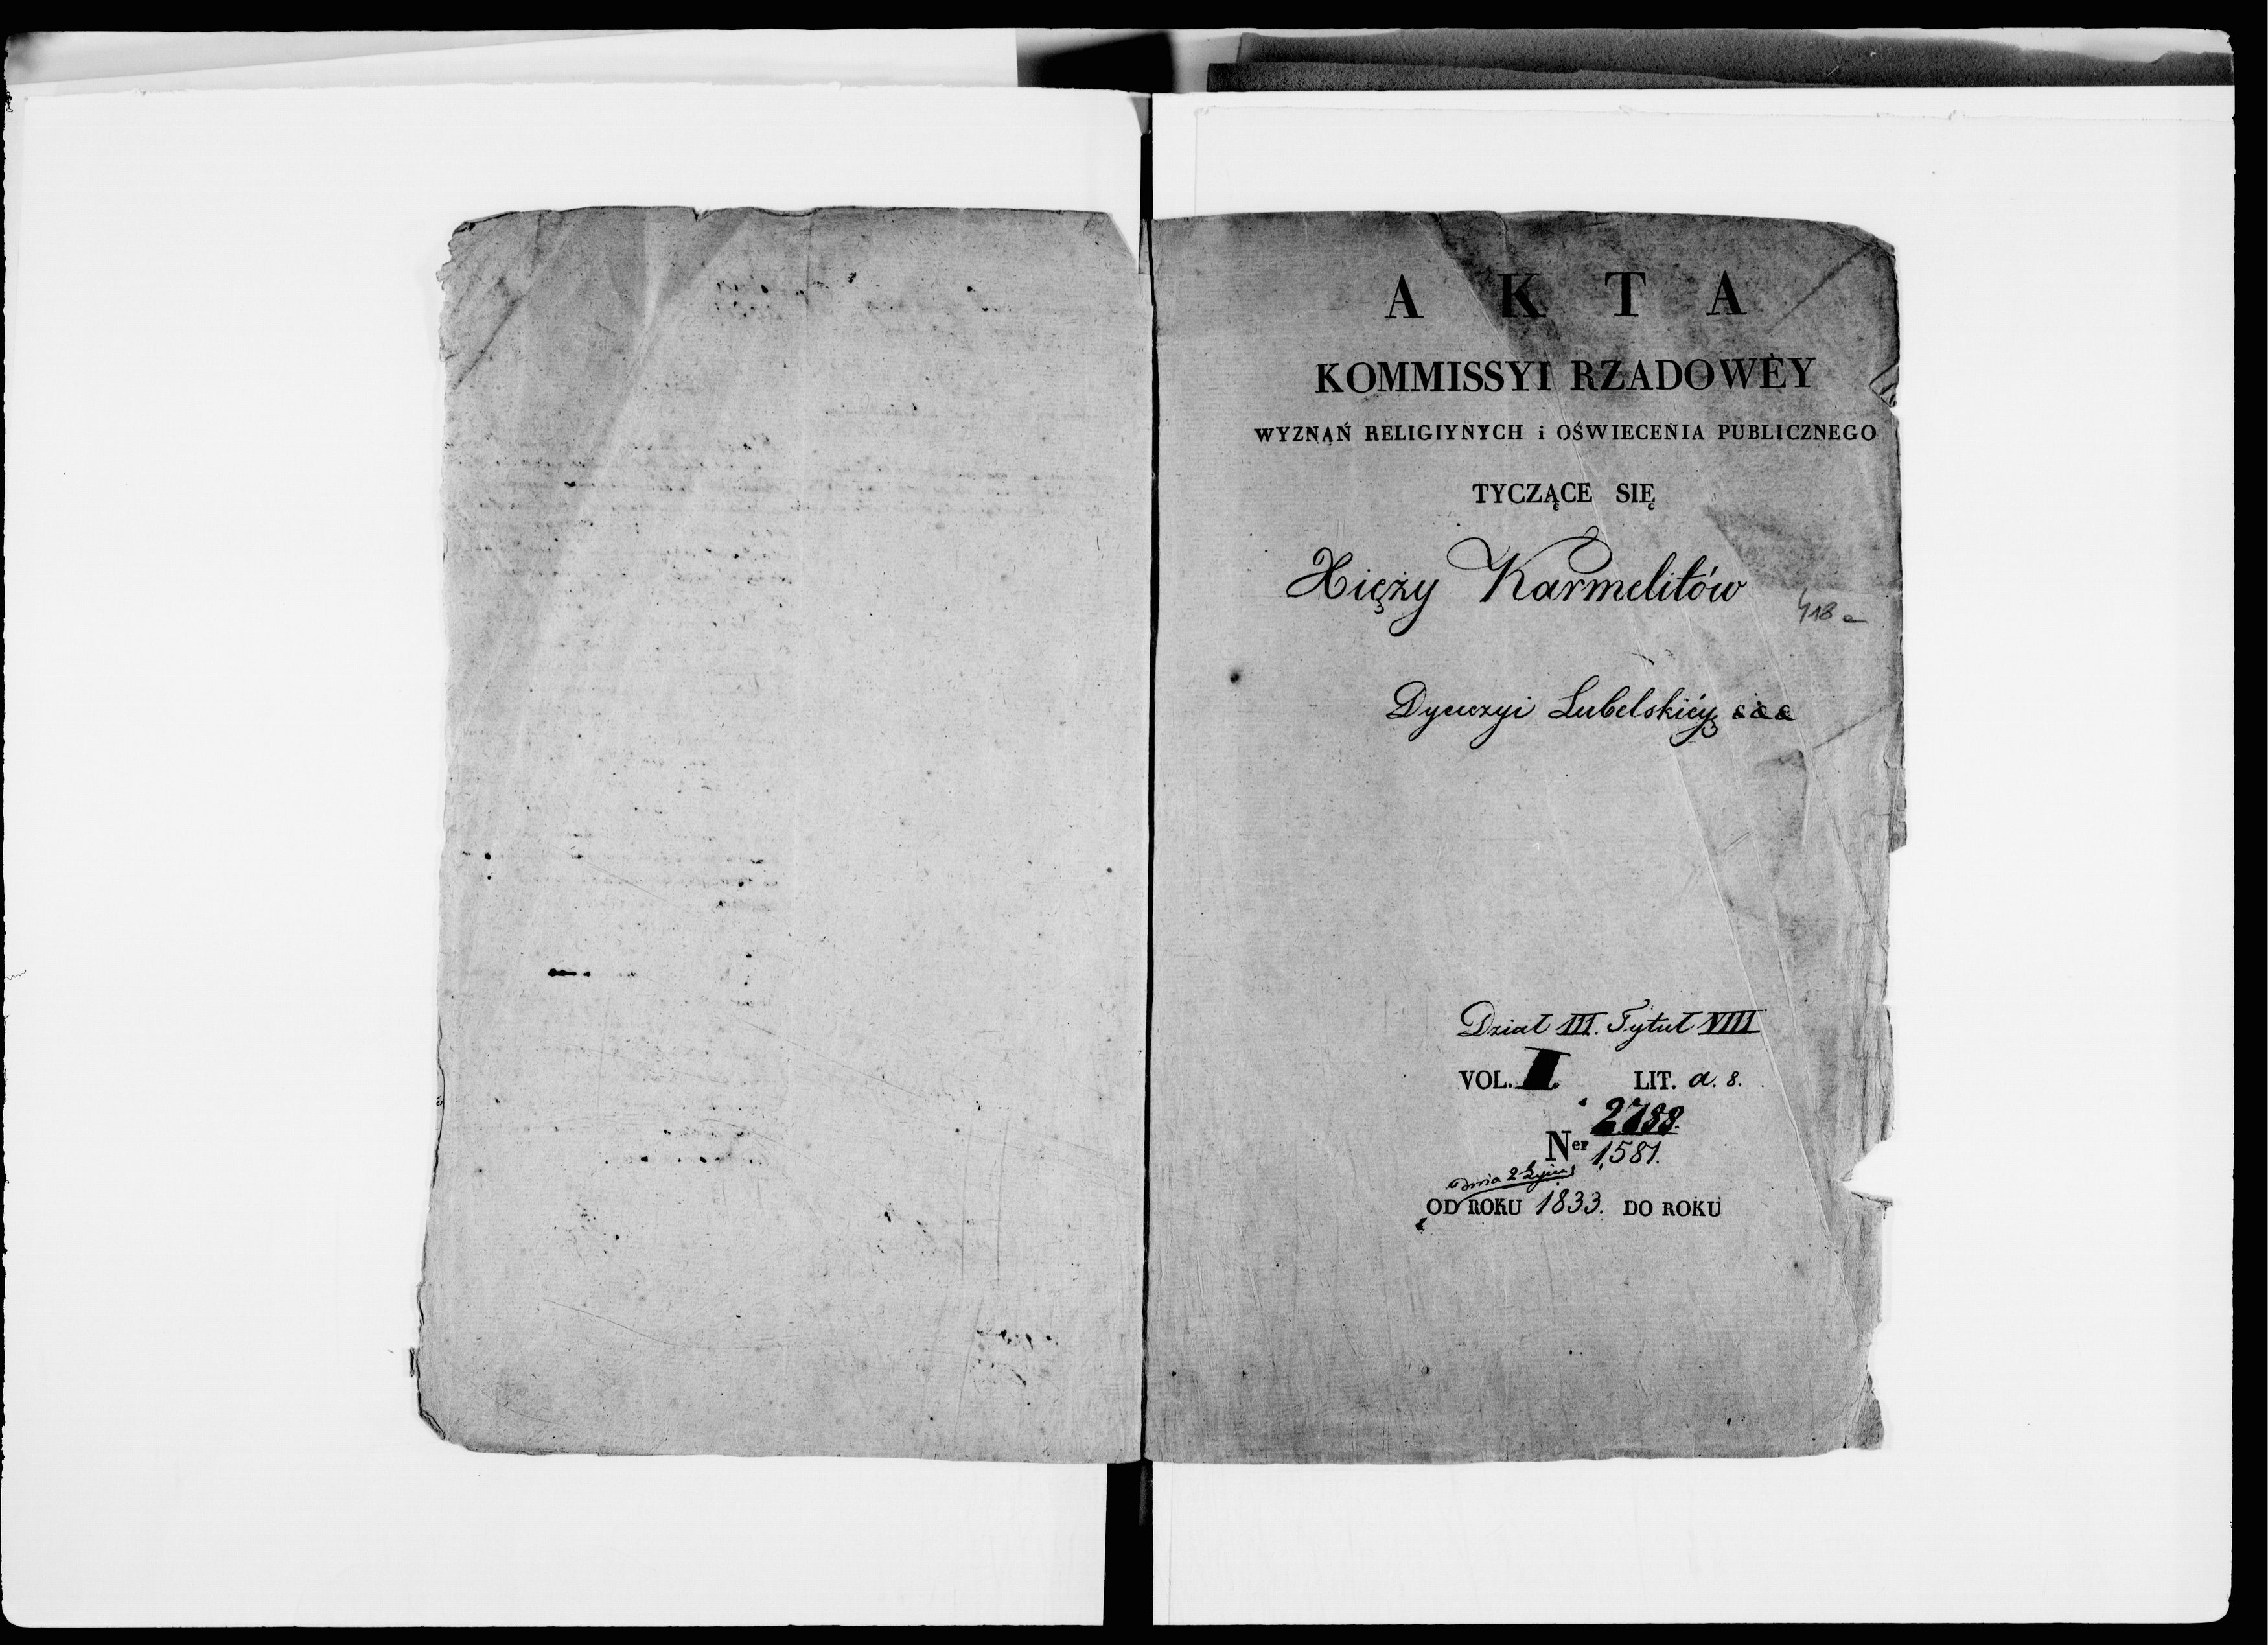 AKTA
KOMMISSYI RZADOWÉY
WYZNAŃ RELIGIYNYCH i OŚWIECENIA PUBLICZNEGO
TYCZĄCE SIĘ
Xięży Karmelitów
418 a
Dyecezyi Lubelskiéy
Dział III. Tytuł VIII
VOL. I LIT. a. 8.
2788.
Ner 1581.
Dnia 2 Lipca
OD ROKU 1833. DO ROKU